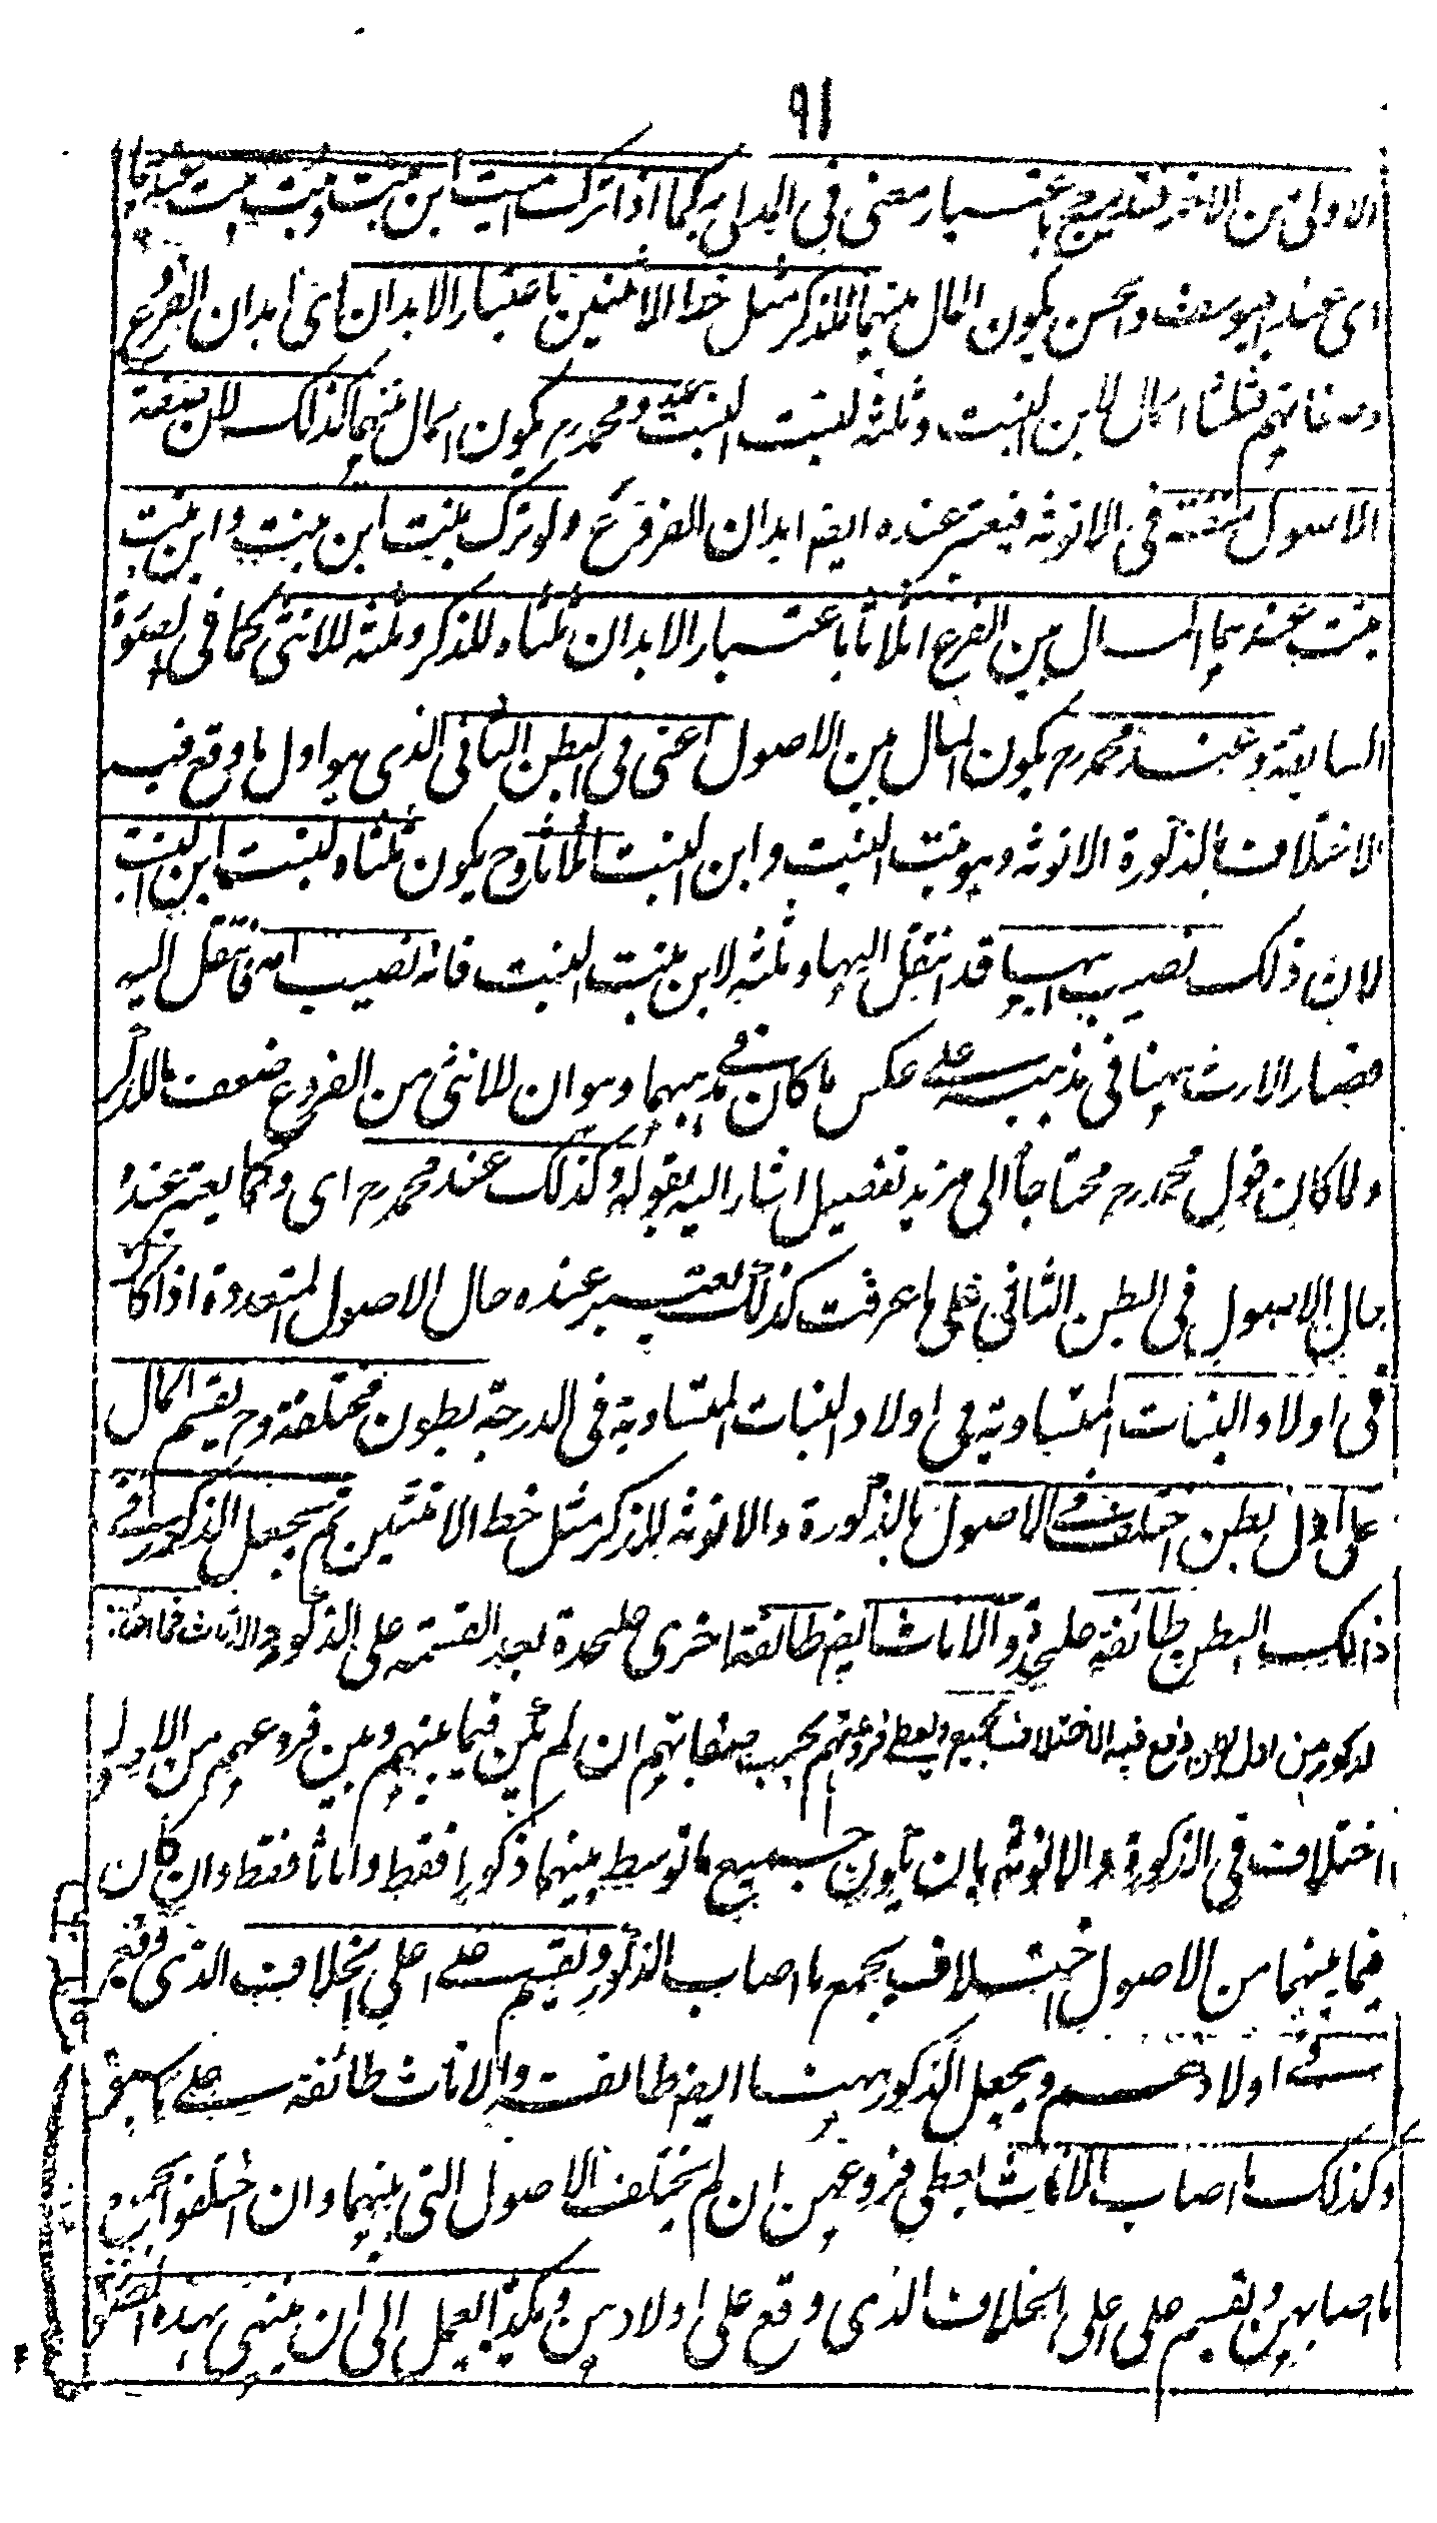 ٩١
الاولى من الاخر فيترجح باعتبار معنى فى المدلى به كما اذا ترك ميت ابن بنت وبنت بنت عندهما
اى عند ابيوسف والحسن يكون المال بينهما للذكر مثل حظ الانثيين باعتبار الابدان اى ابدان الفروع
وصفاتهم فثلثا المال لابن البنت وثلثه لبنت البنت وعند محمد رح يكون المال بينهما كذلك لان صفة
الاصول متفقة فى الانوثة فيعتبر عنده ايضا ابدان الفروع ولو ترك بنت ابن بنت وابن بنت
بنت عندهما المال بين الفروع اثلاثا باعتبار الابدان ثلثاه للذكر وثلثه للانثى كما فى الصورة
السابقة وعند محمد رح يكون المال بين الاصول اعنى فى البطن الثانى الذى هو اول ما وقع فيه
الاختلاف بالذكورة الانوثة وهو بنت البنت وابن البنت اثلاثا وح يكون ثلثاه لبنت ابن البنت
لان ذلك نصيب ابيها قد انتقل اليها وثلثه لابن بنت البنت فانه نصيب امه فانتقل اليه
فصار الارث ههنا فى مذهبه على عكس ما كان فى مذهبهما وهو ان للانثى من الفروع ضعف ما للذكر
ولما كان قول محمد رح محتاجا الى مزيد تفصيل اشار اليه بقوله وكذلك عند محمد رح اى وكما يعتبر عنده
حال الاصول فى البطن الثانى على ما عرفت كذلك يعتبر عنده حال الاصول المتعددة اذا كان
فى اولاد البنات المتساوية فى اولاد البنات المتساوية فى الدرجة بطون مختلفة وح يقسم المال
على اول بطن اختلف فى الاصول بالذكورة والانوثة للذكر مثل حظ الانثيين ثم يجعل الذكور فى
ذالك البطن طائفة عليحدة والاناث ايضا طائفة اخرى عليحدة بعد القسمة على الذكور والاناث فما اصاب
لذكور من اول بطن وقع فيه الاختلاف يجمع ويعطى فروعهم بحسب صفاتهم ان لم يكن فيما بينهم وبين فروعهم من الاصول
اختلاف فى الذكورة والانوثة بان يكون جميع ما توسط بينهما ذكورا فقط واناثا فقط وان كان
فيما بينهما من الاصول اختلاف يجمع ما اصاب الذكور ويقسم على اعلى الخلاف الذى وقع
فى اولادهم ويجعل الذكور ههنا ايضا طائفة والاناث طائفة على ما سبق
وكذلك ما اصاب الاناث يعطى فروعهن ان لم يختلف الاصول التى بينهما وان اختلفوا يجمع
ما اصابهن ويقسم على اعلى الخلاف الذى وقع على اولادهن وهكذا العمل الى ان ينتهى بهذه الصورة